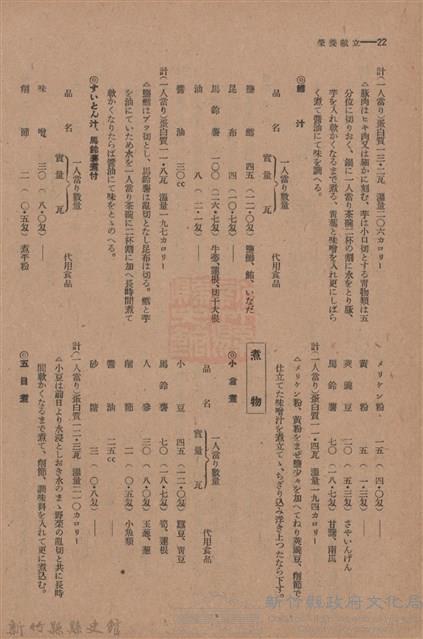 22——立献養栄
計(一人當り)蛋白質一三・二瓦 溫量二〇六カロリー
△豚肉はヒキ肉又は細かに刻む、芋は小口切とする青物類は五
分位に切りおく、鍋に一人當り茶碗二杯の割に水をとり豚、
芋を入れ軟かくなるまで煮る、青葱と味噌を入れ更にしばら
く煮て醬油にて味を調へる。
◎鱈汁
品名 一人當り數量 實量 瓦 代用食品
鹽鱈 四五 (一二・〇匁) 鹽鰤、鮪、いなだ
昆布 四 (一・〇匁) ——
馬鈴薯 一〇〇 (二六・七匁) 牛蒡、蓮根、切干大根
油 八 (二・一匁)
醬油 三〇cc
計(一人當り)蛋白質一一・八瓦 溫量一九七カロリー
△鹽鱈はブツ切とし、馬鈴薯は亂切となし昆布は切る。鱈と芋
を油にていため水を一人當り茶碗に二杯の割に加へ長時間煮て
軟かくなりたらば醬油にて味をとゝのへる。
◎すいとん汁、馬鈴薯煮付
品名 一人當り數量 實量 瓦 代用食品
味噌 三〇 (八・〇匁) ——
削節 二 (〇・五匁) 煮干粉
メリケン粉 一五 (四・〇匁) ——
黃粉 五 (一・三匁) ——
莢豌豆 二〇 (五・三匁) さやいんげん
馬鈴薯 七〇 (一八・七匁) 甘藷、南瓜
計(一人當り)蛋白質一一・四瓦 溫量一九四カロリー
△メリケン粉、黃粉をまぜ鹽少々を加へてねり莢豌豆、削節で
仕立てた味噌汁を煮立てゝ、ちぎり込み浮き上つたなら下す。
煮物
◎小倉煮
品名 一人當り數量 實量 瓦 代用食品
小豆 四五 (一二・〇匁) 豌豆、靑豆
馬鈴薯 七〇 (一八・七匁) 筍、蓮根
人參 三〇 (八・〇匁) 玉葱、葱
削節 二 (〇・五匁) 小魚類
醬油 二五cc
砂糖 三 (〇・八匁) ——
計(一人當り)蛋白質一二・三瓦 溫量二一〇カロリー
△小豆は前日より水浸としおき水のまゝ野菜の亂切と共に長時
間軟かくなるまで煮て、削節、調味料を入れて更に煮込む。
◎五目煮
新竹縣縣史館
新竹縣政府文化局